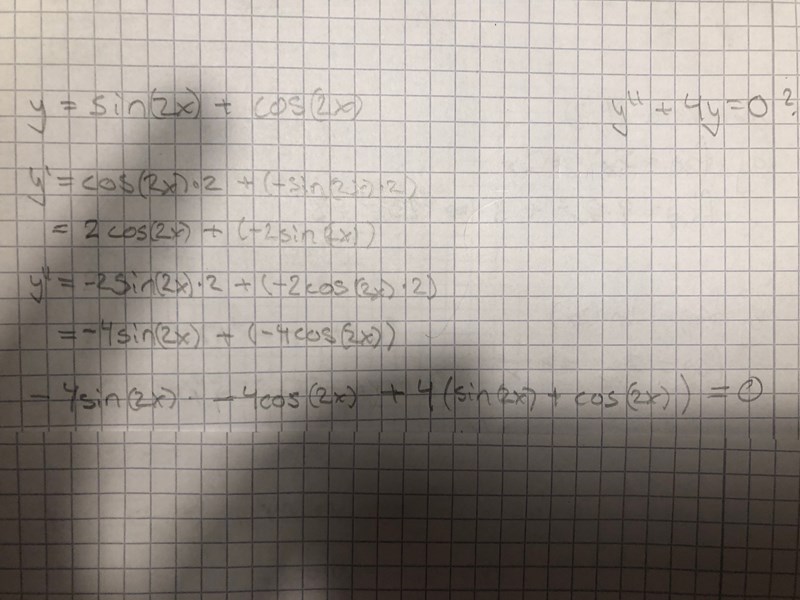 y = sin(2x) + cos(2x)
y'' + 4y = 0 ?
y' = cos(2x)·2 + (-sin(2x)·2)
= 2cos(2x) + (-2sin(2x))
y'' = -2sin(2x)·2 + (-2cos(2x)·2)
= -4sin(2x) + (-4cos(2x))
-4sin(2x) - 4cos(2x) + 4(sin(2x) + cos(2x)) = 0